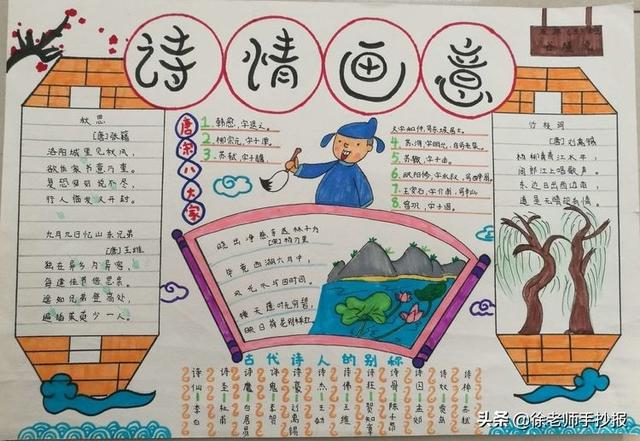 诗情画意
秋思
[唐]张籍
洛阳城里见秋风,
欲作家书意万重。
复恐匆匆说不尽,
行人临发又开封。
九月九日忆山东兄弟
[唐]王维
独在异乡为异客,
每逢佳节倍思亲。
遥知兄弟登高处,
遍插茱萸少一人。
唐宋八大家
1.韩愈,字退之。
2.柳宗元,字子厚。
3.苏轼,字子瞻
4.苏洵,字明允,自号老泉。
5.苏辙,字子由。
6.欧阳修,字永叔,号醉翁
7.王安石,字介甫,号半山
8.曾巩,字子固。
晓出净慈寺送林子方
[宋]杨万里
毕竟西湖六月中
风光不与四时同。
接天莲叶无穷碧
映日荷花别样红
竹枝词
[唐]刘禹锡
杨柳青青江水平
闻郎江上唱歌声。
东边日出西边雨
道是无晴却有情。
古代诗人的别称
诗仙李白
诗圣杜甫
诗魔白居易
诗鬼李贺
诗豪刘禹锡
诗杰王勃
诗佛王维
诗狂贺知章
诗骨陈子昂
诗囚孟郊
诗奴贾岛
诗神苏轼
头条@徐老师手抄报